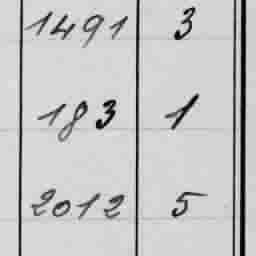 1491 3
183 1
2012 5